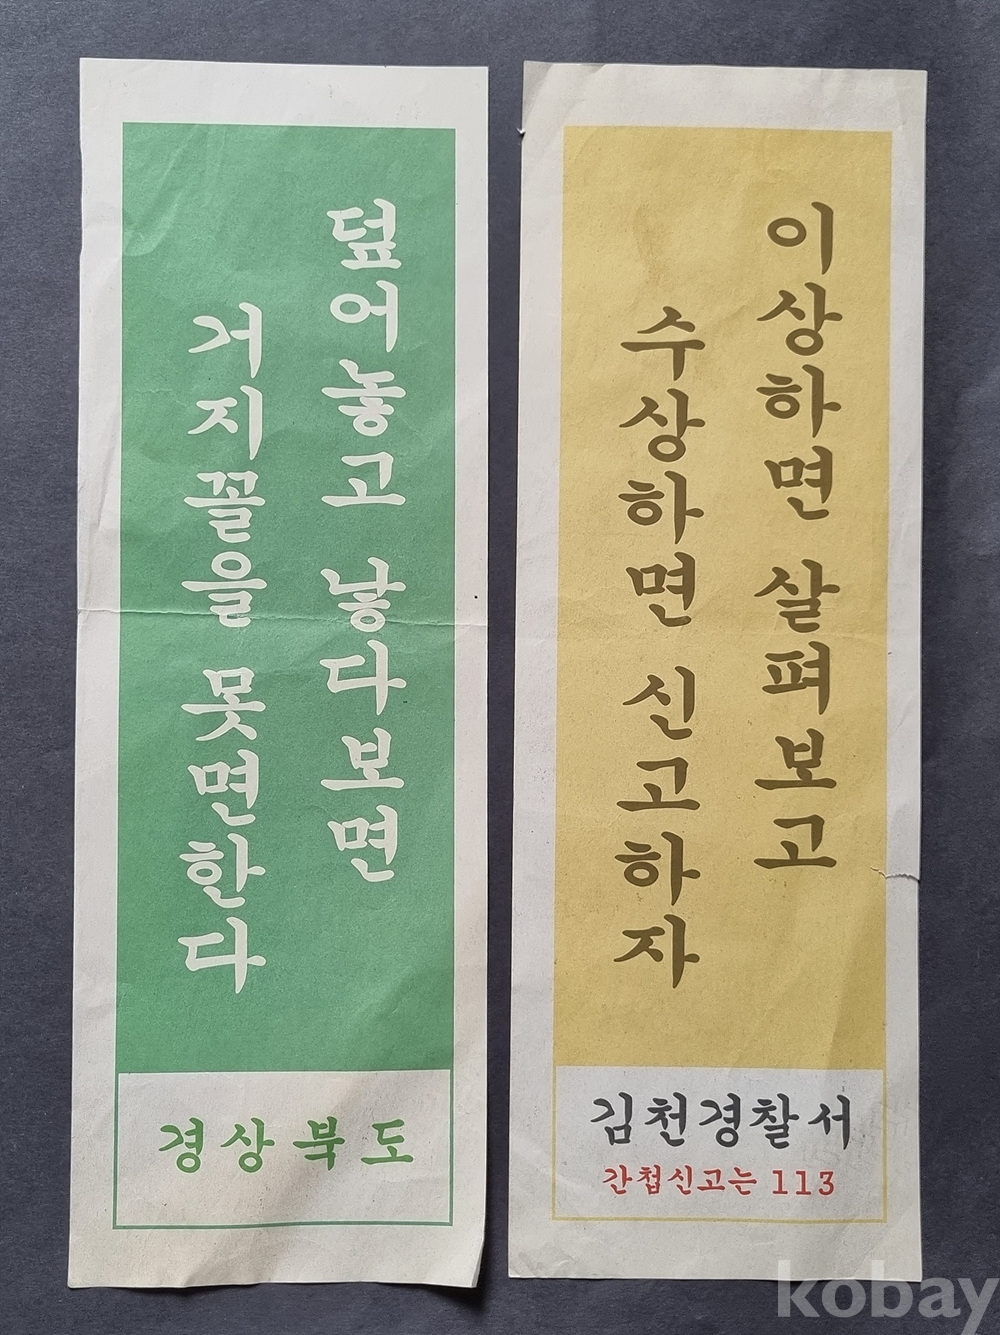 덮어놓고 낳다보면
거지꼴을 못면한다
경상북도
이상하면 살펴보고
수상하면 신고하자
김천경찰서
간첩신고는 113
kobay